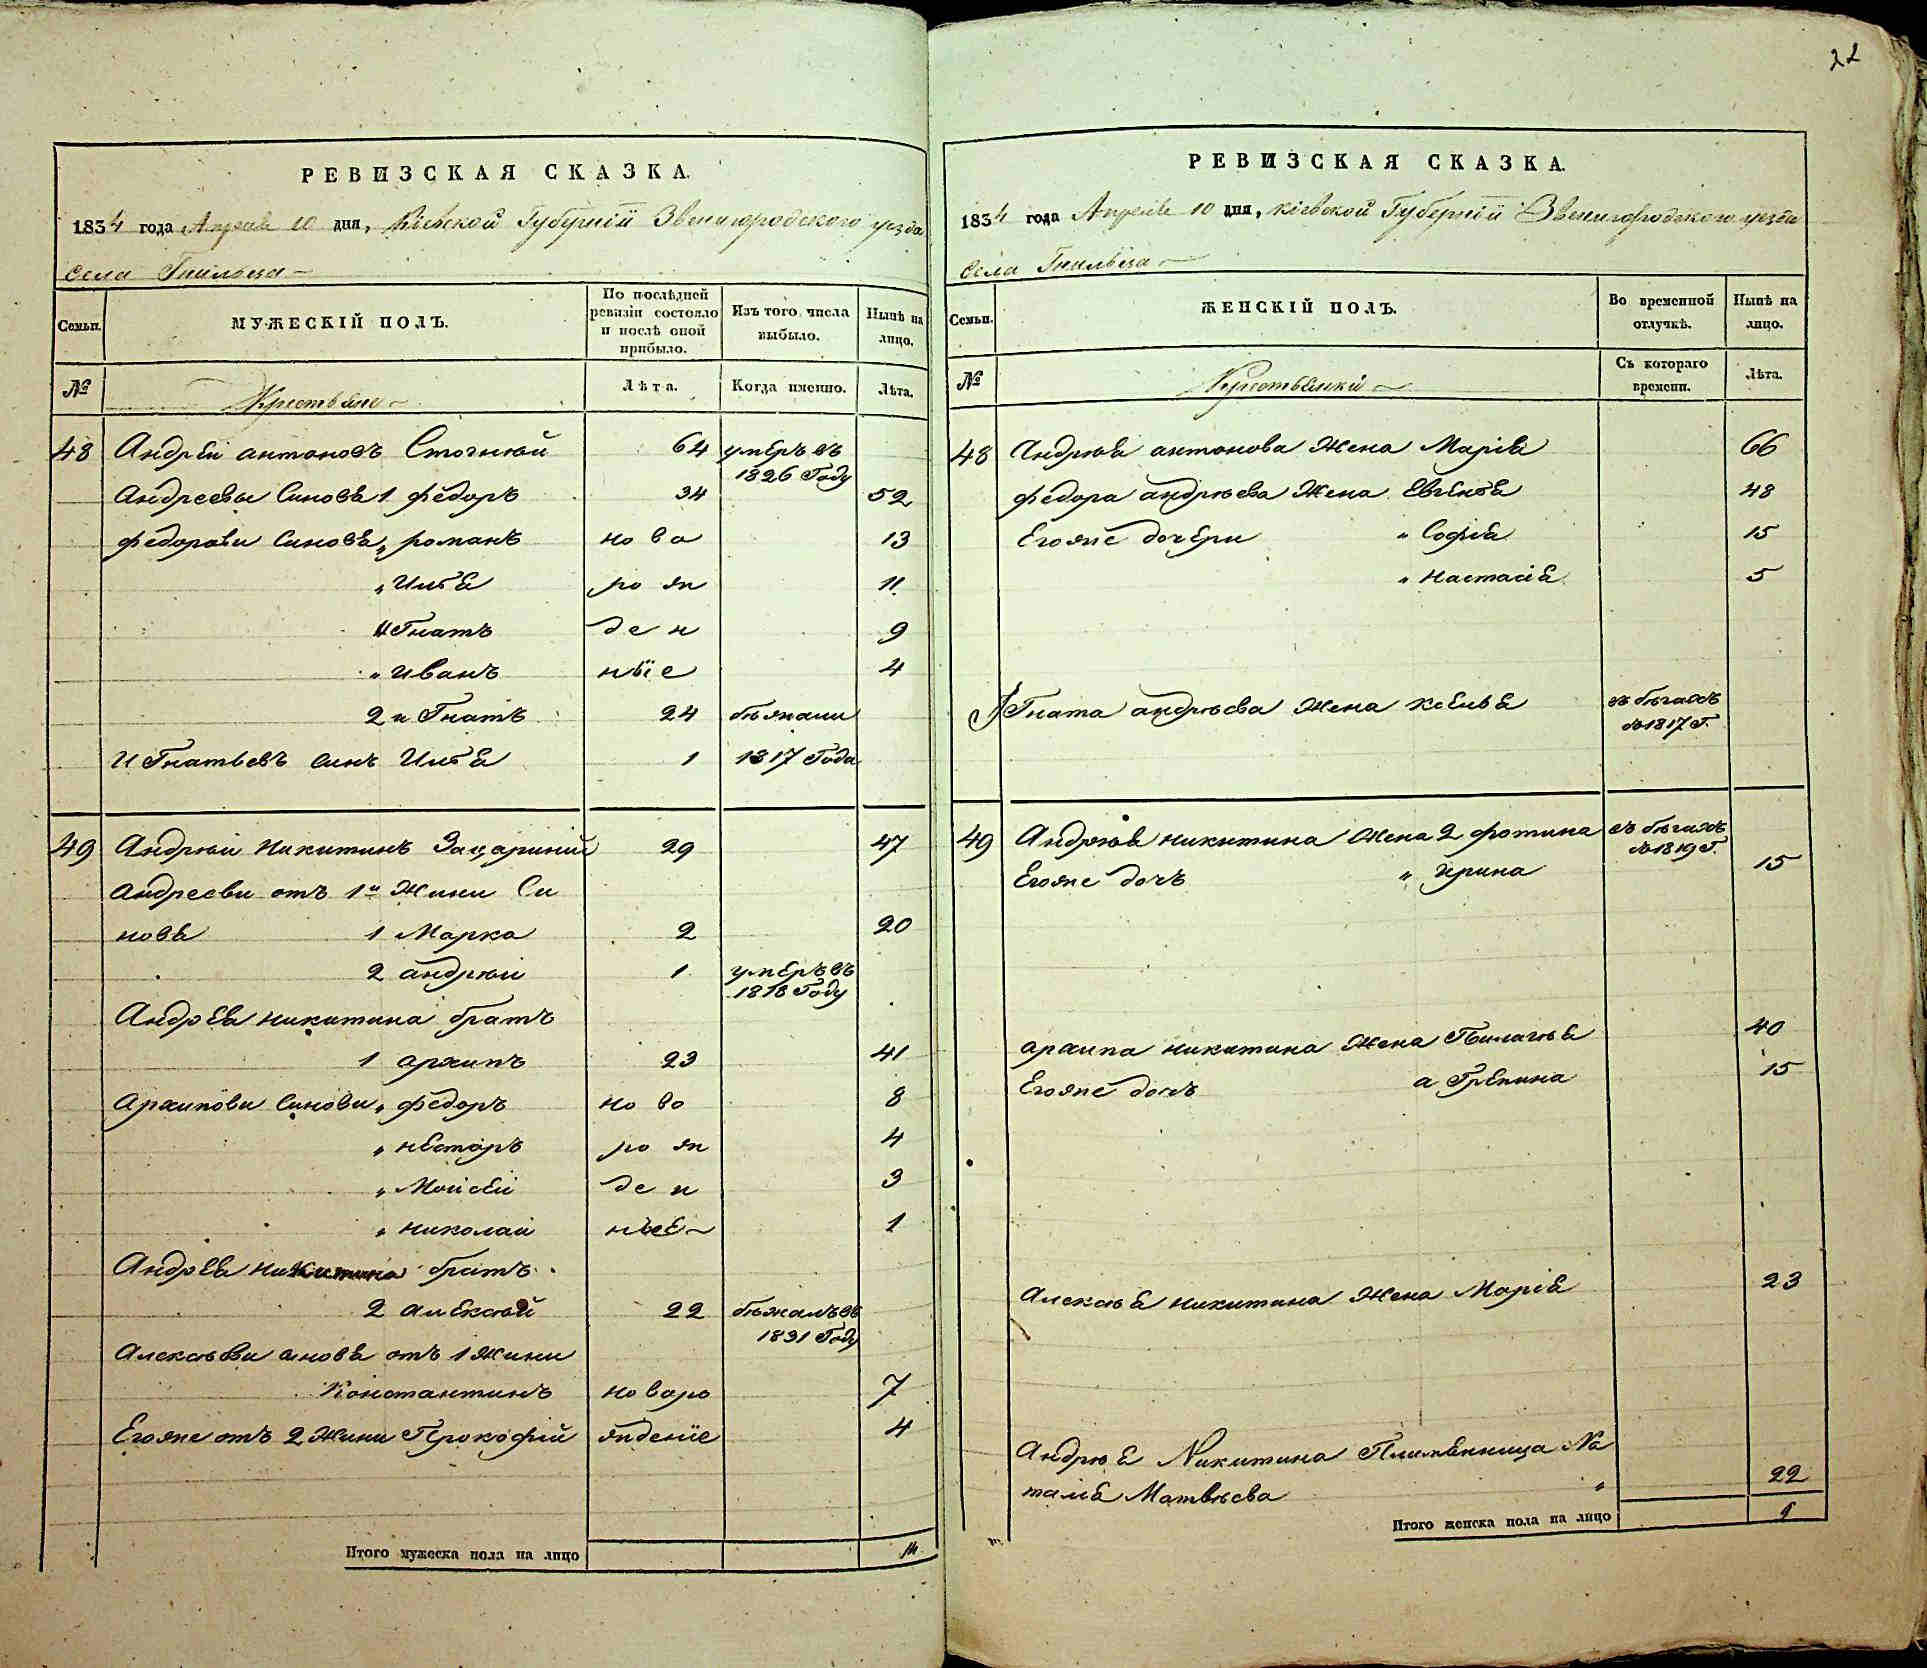 22
РЕВИЗСКАЯ СКАЗКА.
1834 года Апреля 10 дня, Кіевской Губерніи Звенигородского уезда
Села Гнильца
Семьи.
МУЖЕСКІЙ ПОЛЪ.
По послѣдней ревизіи состояло и послѣ оной прибыло.
Изъ того числа выбыло.
Нынѣ на лицо.
№
Крестьяне
Лѣта.
Когда именно.
Лѣта.
48 Андрей антоновъ Стогний 64 умеръ въ 1826 Году
Андреевы Синовя 1 федоръ 34 52
федорови Синовя „ романъ ново 13
„ Илья рож 11
„ Гнатъ ден 9
„ Иванъ ные 4
2 и Гнатъ 24 бежали
И Гнатьевъ синъ Илья 1 1817 Года
49 Андрѣй Никитинъ 29 47
Андрееви отъ 1й Жини Си
новя 1 Марко 2 20
2 андрѣй 1 умеръ въ 1818 Году
Андрея никитина братъ
1 архипъ 23 41
Архипови Синови „ федоръ ново 8
„ несторъ рож 4
„ Мойсей ден 3
„ николай ные 1
Андрея никитина братъ
2 алексѣй 22 бѣжалъ въ 1831 Году
Алексѣеви синовя отъ 1 жини
Константинъ новоро 7
Егоже отъ 2 Жини Прокофій жденіе 4
Итого мужеска пола на лицо 14
РЕВИЗСКАЯ СКАЗКА.
1834 года Апреля 10 дня, Кіевской Губерніи Звенигородского уезда
Села Гнильца
Семьи.
ЖЕНСКІЙ ПОЛЪ.
Во временной отлучкѣ.
Нынѣ на лицо.
№
Крестьянки
Съ котораго времени.
Лѣта.
48 Андрѣя антонова Жена Марія 66
федора андрѣева Жена Евгенія 48
Егоже дочери „ Софія 15
„ Настасія 5
Гната андрѣева Жена Ксенья въ бѣгахъ въ 1817 г.
49 Андрѣя никитина Жена 2 фотина въ бѣгахъ въ 1819 г.
Егоже дочъ „ Ирина 15
архипа никитина Жена Пилагѣя 40
Егоже дочъ а Грепина 15
Алексѣя никитина Жена Марія 23
Андрѣя Никитина Племѣнница На
талія Матвѣева „ 22
Итого женска пола на лицо 9